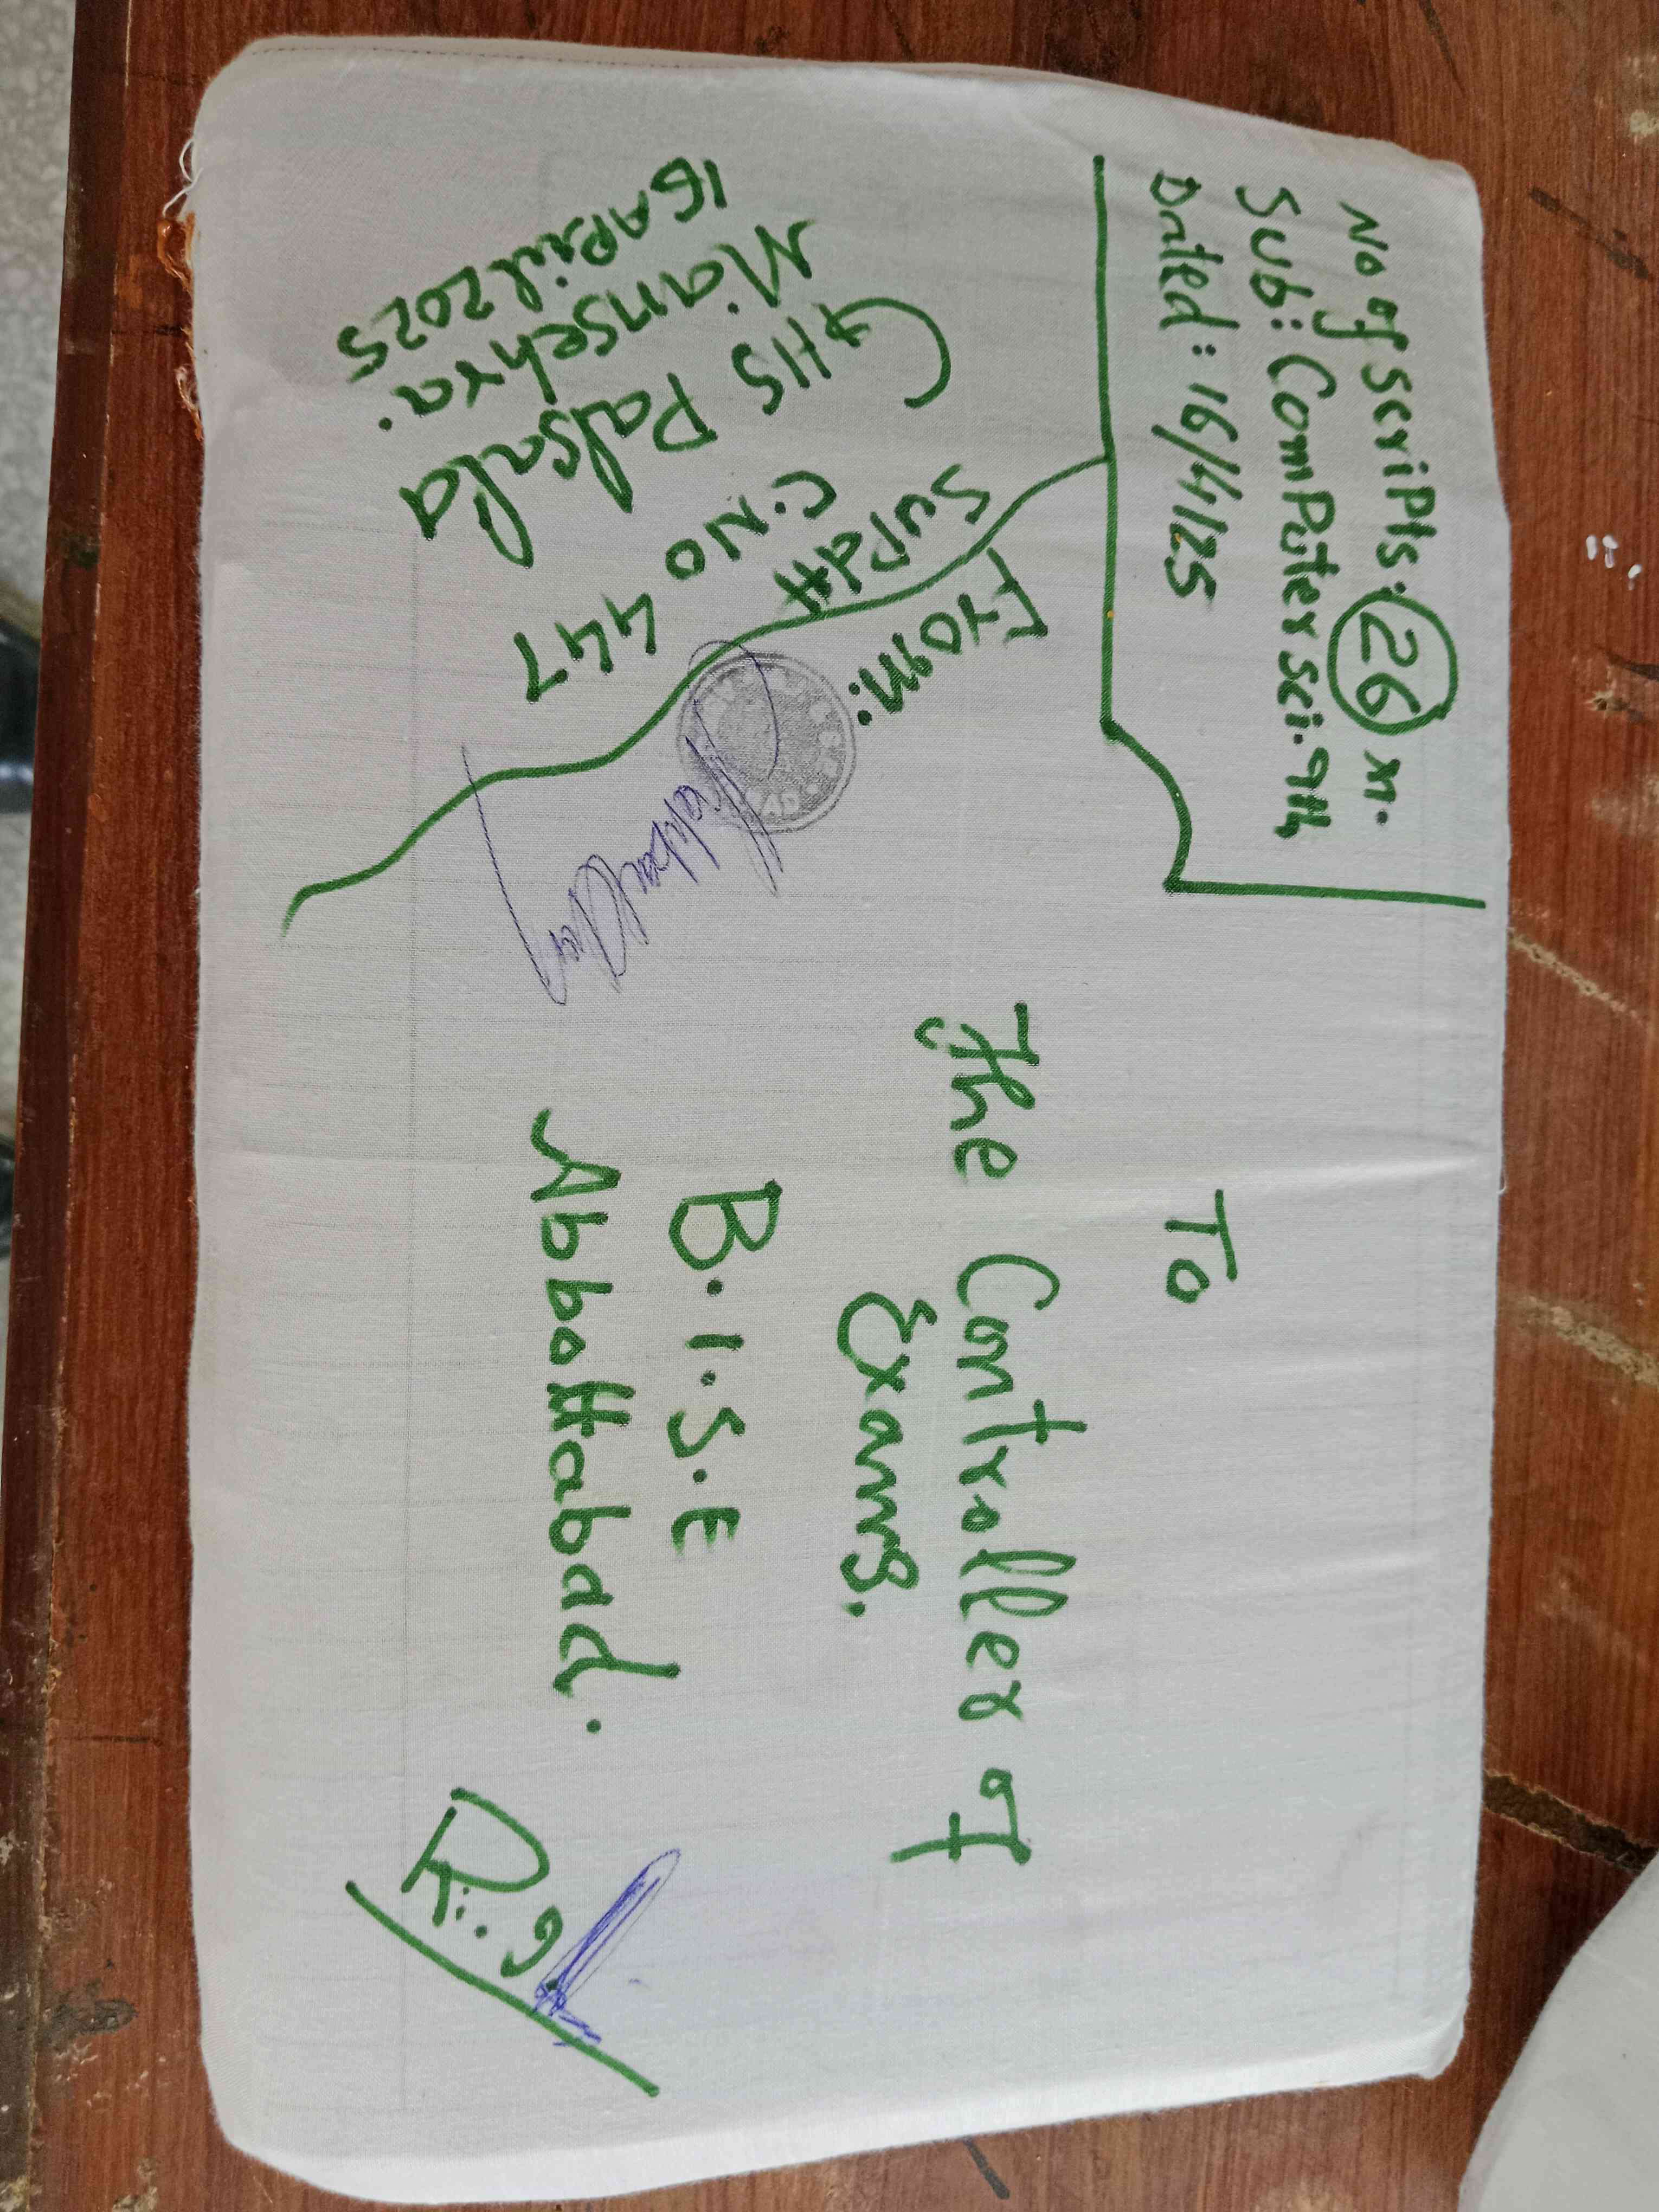 No of scripts: 26 m.
Sub: Computer sci. 9th
Dated: 16/4/25
To
The Controller of
Exams.
B.I.S.E
Abbottabad.
From:
Supdtt
C.NO 447
GHS Palsala
Mansehra.
16 April 2025